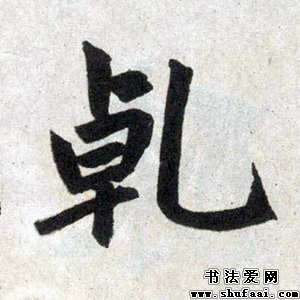 乹
书法爱网
www.shufaai.com